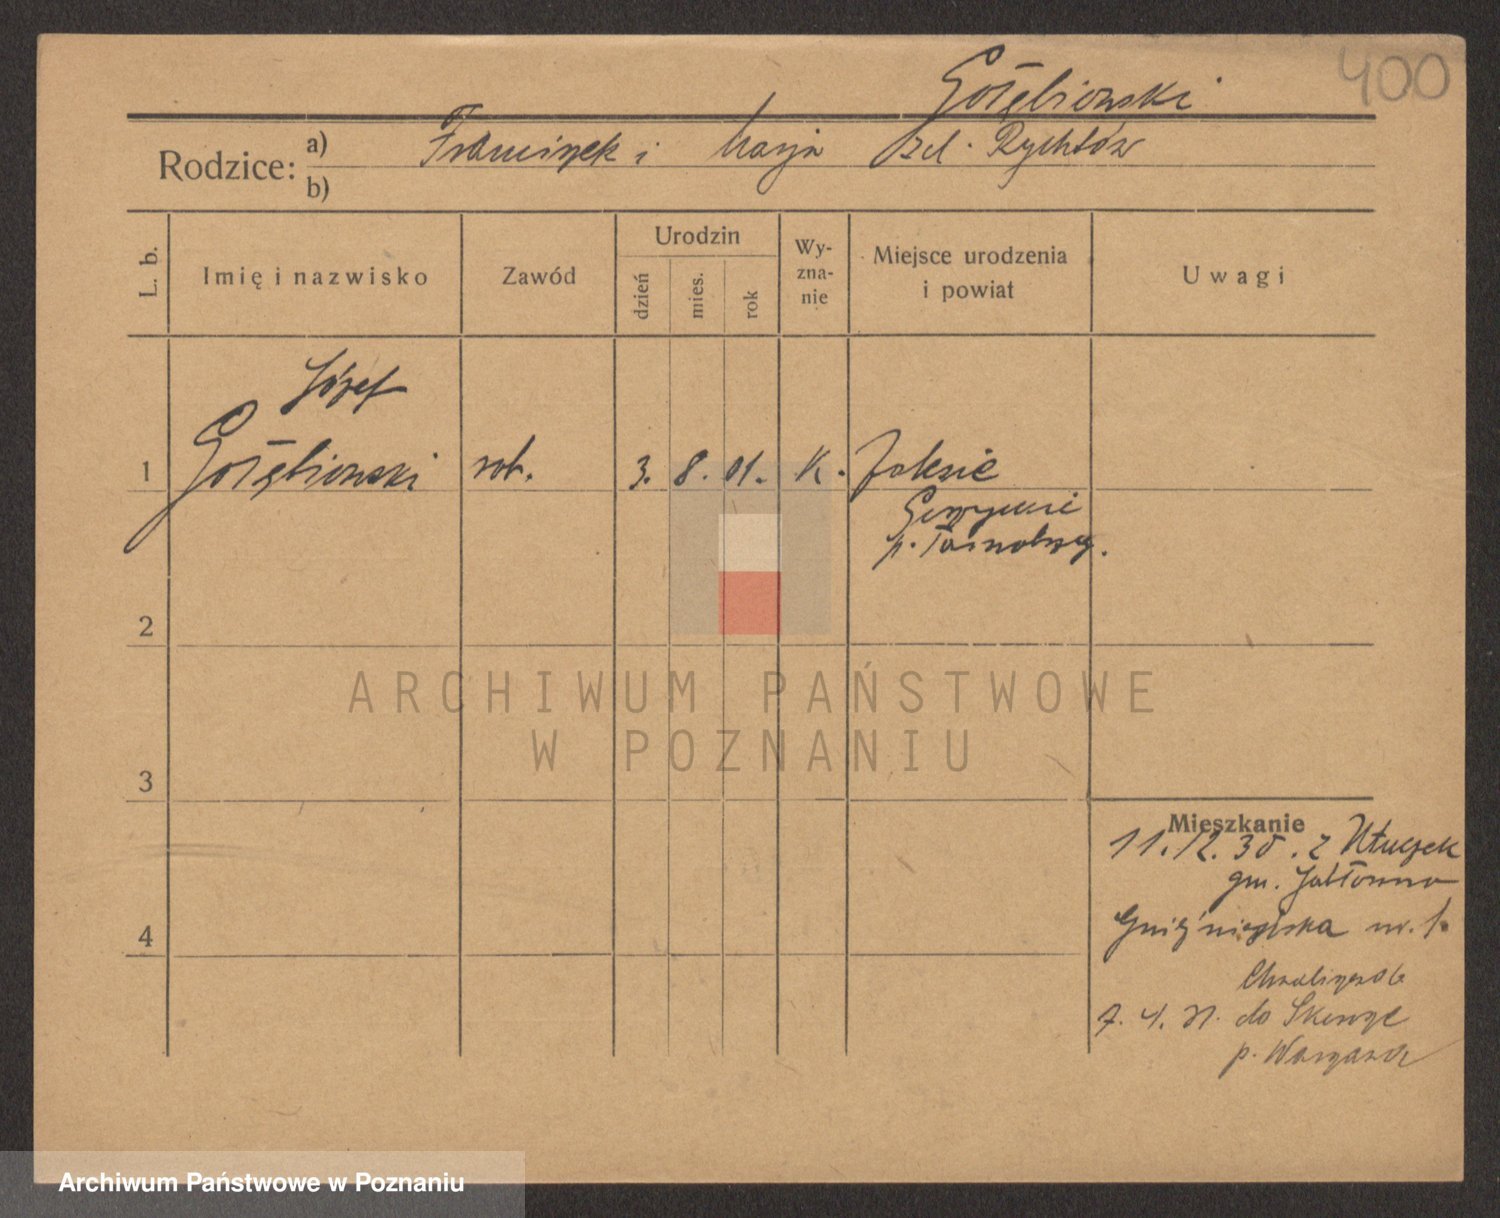 400
Gołębiowski
Rodzice: a) Franciszek i Marja zd. Rychtów
b)
L. b.
Imię i nazwisko
Zawód
Urodzin
dzień
mies.
rok
Wy-
zna-
nie
Miejsce urodzenia
i powiat
Uwagi
Józef
1 Gołębiowski rob. 3. 8. 01. k.
p. Tarnobrzeg.
2
ARCHIWUM PAŃSTWOWE
W POZNANIU
3
Mieszkanie
11. 12. 30. z
gm. Jabłonna
Gnieźnieńska nr. 1.
4
7. 4. 31. do
p. Warszawa
Archiwum Państwowe w Poznaniu